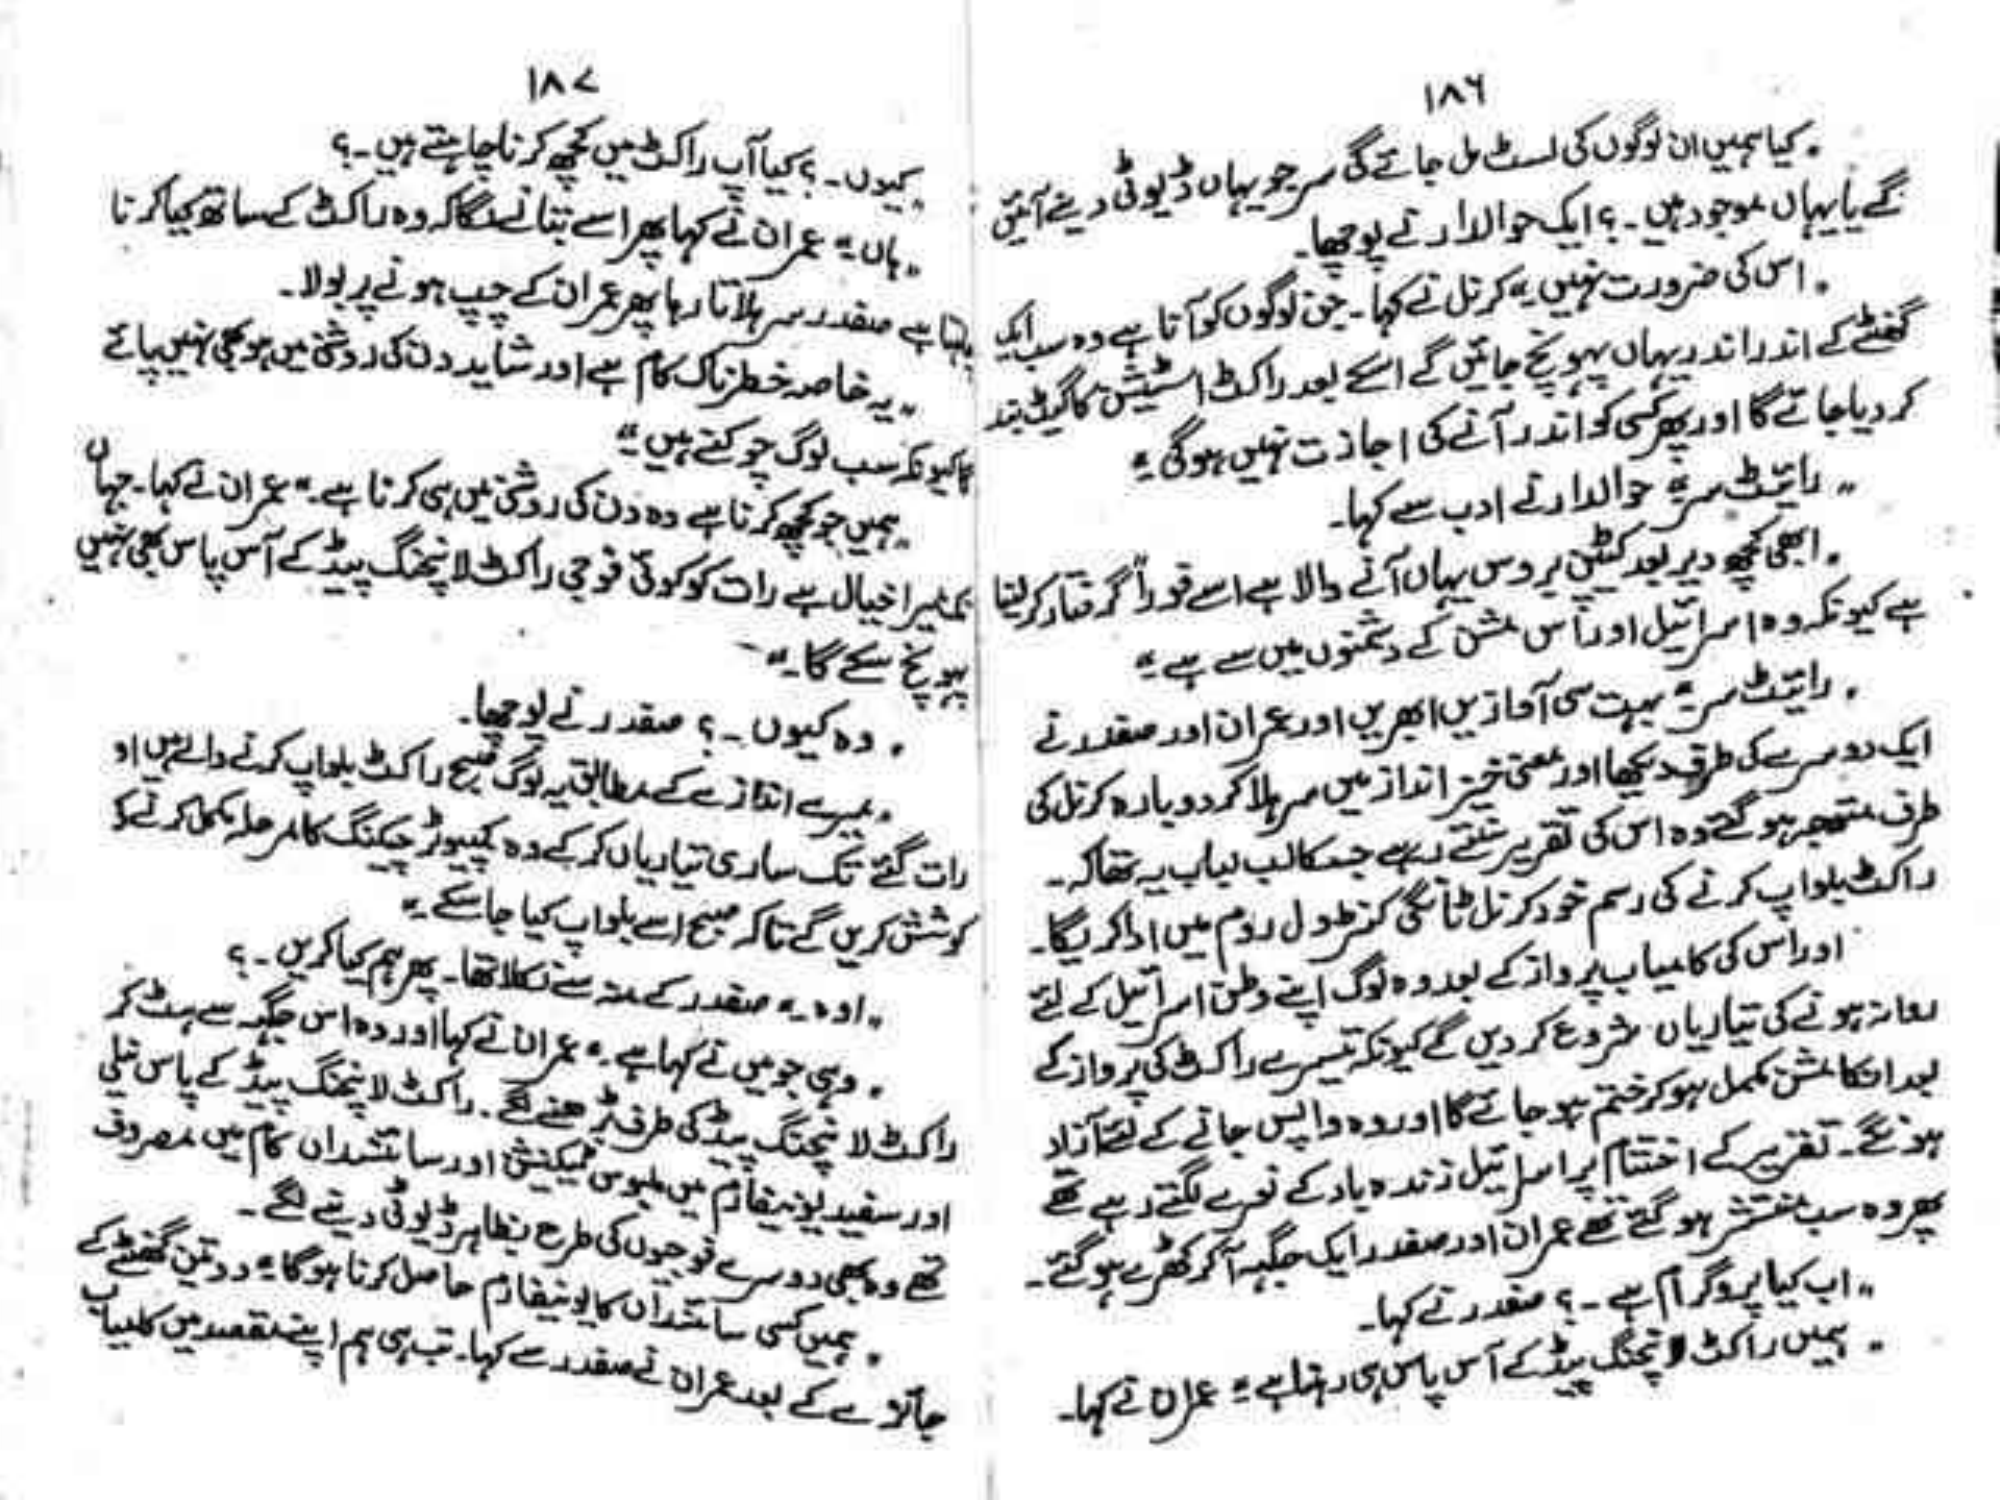 ۱۸۶
کیا ہمیں ان لوگوں کی لسٹ مل جائے گی سر جو یہاں ڈیوٹی دینے آئیں
گے یا یہاں موجود ہیں۔؟ ایک حوالدار نے پوچھا۔
اس کی ضرورت نہیں۔" کرنل نے کہا۔ جن لوگوں کو آنا ہے وہ سب ایک
گھنٹے کے اندر اندر یہاں پہونچ جائیں گے اسکے بعد راکٹ اسٹیشن کا گیٹ بند
کر دیا جائے گا اور پھر کسی کو اندر آنے کی اجازت نہیں ہوگی۔"
"رائیٹ سر۔" حوالدار نے ادب سے کہا۔
ابھی کچھ دیر بعد کیپٹن بروس یہاں آنے والا ہے اسے فوراً گرفتار کر لینا
ہے کیونکہ وہ اسرائیل اور اس مشن کے دشمنوں میں سے ہے۔"
رائیٹ سر۔" بہت سی آوازیں ابھریں اور عمران اور صفدر نے
ایک دوسرے کی طرف دیکھا اور معنی خیز انداز میں سر ہلا کر دوبارہ کرنل کی
طرف متوجہ ہو گئے وہ اس کی تقریر سنتے رہے جسکا لب لباب یہ تھا کہ۔
راکٹ بلواپ کرنے کی رسم خود کرنل ٹانگی کنٹرول روم میں ادا کریگا۔
اور اس کی کامیاب پرواز کے بعد وہ لوگ اپنے وطن اسرائیل کے لئے
روانہ ہونے کی تیاریاں شروع کر دیں گے کیونکہ تیسرے راکٹ کی پرواز کے
بعد انکا مشن مکمل ہو کر ختم ہو جائے گا اور وہ واپس جانے کے لئے آزاد
ہونگے۔ تقریر کے اختتام پر اسرائیل زندہ باد کے نعرے لگتے رہے تھے
پھر وہ سب منتشر ہو گئے تھے عمران اور صفدر ایک جگہہ آ کر کھڑے ہو گئے۔
"اب کیا پروگرام ہے۔؟ صفدر نے کہا۔
ہمیں راکٹ لانچنگ پیڈ کے آس پاس ہی رہنا ہے۔" عمران نے کہا۔
۱۸۷
کیوں۔؟ کیا آپ راکٹ میں کچھ کرنا چاہتے ہیں۔؟
"ہاں۔" عمران نے کہا پھر اسے بتانے لگا کہ وہ راکٹ کے ساتھ کیا کرنا
چاہتا ہے صفدر سر ہلاتا رہا پھر عمران کے چپ ہونے پر بولا۔
"یہ خاصہ خطرناک کام ہے اور شاید دن کی روشنی میں ہو بھی نہیں پائے
گا کیونکہ سب لوگ چوکنے ہیں۔"
"ہمیں جو کچھ کرنا ہے وہ دن کی روشنی میں ہی کرنا ہے۔" عمران نے کہا۔ جہاں
تک میرا خیال ہے رات کو کوئی فوجی راکٹ لانچنگ پیڈ کے آس پاس بھی نہیں
پہونچ سکے گا۔"
وہ کیوں۔؟ صفدر نے پوچھا۔
میرے اندازے کے مطابق یہ لوگ صبح راکٹ بلواپ کرنے والے ہیں او
رات گئے تک ساری تیاریاں کر کے وہ کمپیوٹر چیکنگ کا مرحلہ مکمل کرنے کی
کوشش کریں گے تاکہ صبح اسے بلواپ کیا جا سکے۔"
"اوہ۔" صفدر کے منہ سے نکلا تھا۔ پھر ہم کیا کریں۔؟
وہی جو میں نے کہا ہے۔" عمران نے کہا اور وہ اس جگہہ سے ہٹ کر
راکٹ لانچنگ پیڈ کی طرف بڑھنے لگے۔ راکٹ لانچنگ پیڈ کے پاس نیلی
اور سفید یونیفارم میں ملبوس ٹیکنیشن اور سائنسداں کام میں مصروف
تھے وہ بھی دوسرے فوجیوں کی طرح بظاہر ڈیوٹی دینے لگے۔
ہمیں کسی سائنسداں کا یونیفارم حاصل کرنا ہوگا۔" دو تین گھنٹے کے
جائزے کے بعد عمران نے صفدر سے کہا۔ تب ہی ہم اپنے مقصد میں کامیاب